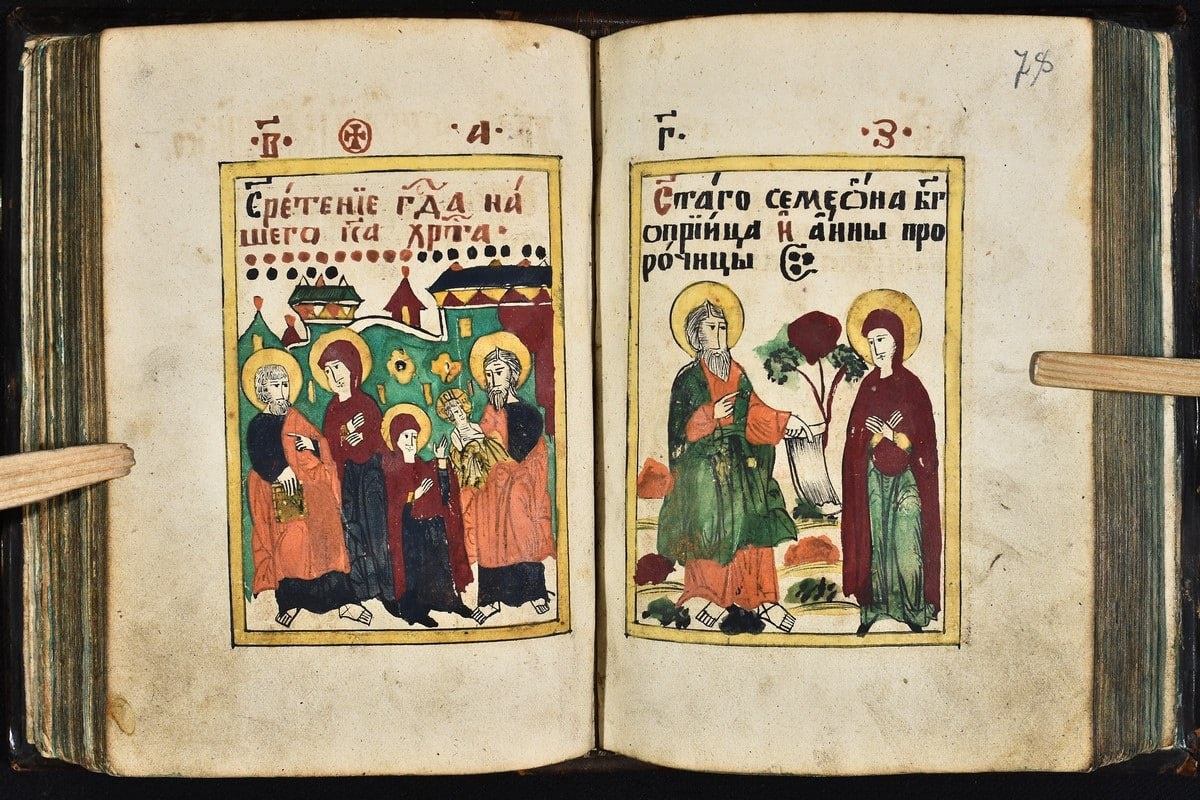 ·в҃· ·а·
Сре́тенїе гд҃а на́
шего і҃са хр҃та·
г҃· ·з·
78
Ст҃а́го семеѡ́на бг҃
оприи́мца и҆ а҆́нны про
ро́чицы